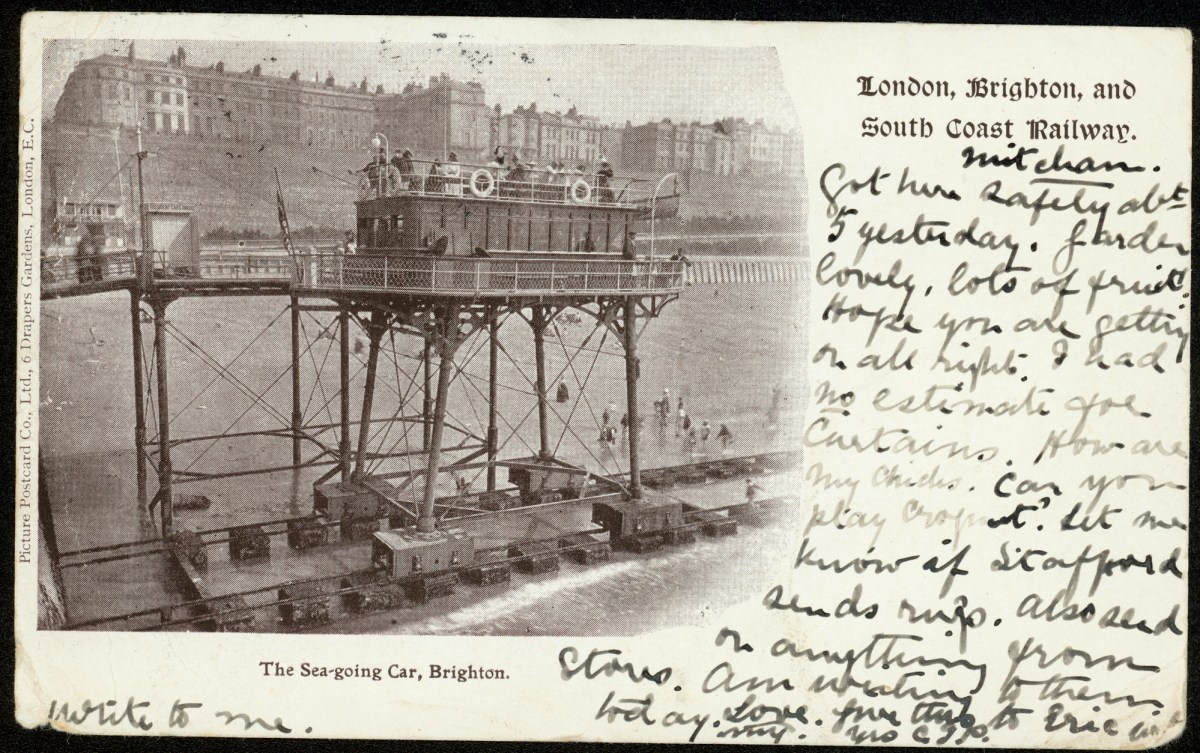 London, Brighton, and
South Coast Railway.
Mitcham.
Got here safely abt
5 yesterday. Garden
lovely, lots of fruit.
Hope you are getting
on all right. I had
no estimate for
Curtains. How are
my chicks. Can you
play croquet? Let me
know if Stafford
sends rugs. Also send
on anything from
Stores. Am writing to them
today. Love. Give this to Eric
yrs
write to me.
The Sea-going Car, Brighton.
Picture Postcard Co., Ltd., 6 Drapers Gardens, London, E.C.